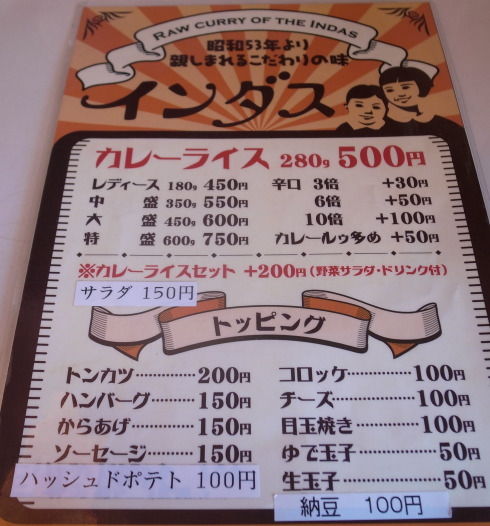 RAW CURRY OF THE INDAS
昭和53年より
親しまれるこだわりの味
インダス
カレーライス 280g 500円
レディース 180g 450円 辛口 3倍 +30円
中盛 350g 550円 6倍 +50円
大盛 450g 600円 10倍 +100円
特盛 600g 750円 カレールゥ多め +50円
※カレーライスセット +200円(野菜サラダ・ドリンク付)
サラダ 150円
トッピング
トンカツ…………200円 コロッケ…………100円
ハンバーグ………150円 チーズ……………100円
からあげ…………150円 目玉焼き…………100円
ソーセージ………150円 ゆで玉子…………50円
ハッシュドポテト 100円 生玉子……………50円
納豆 100円